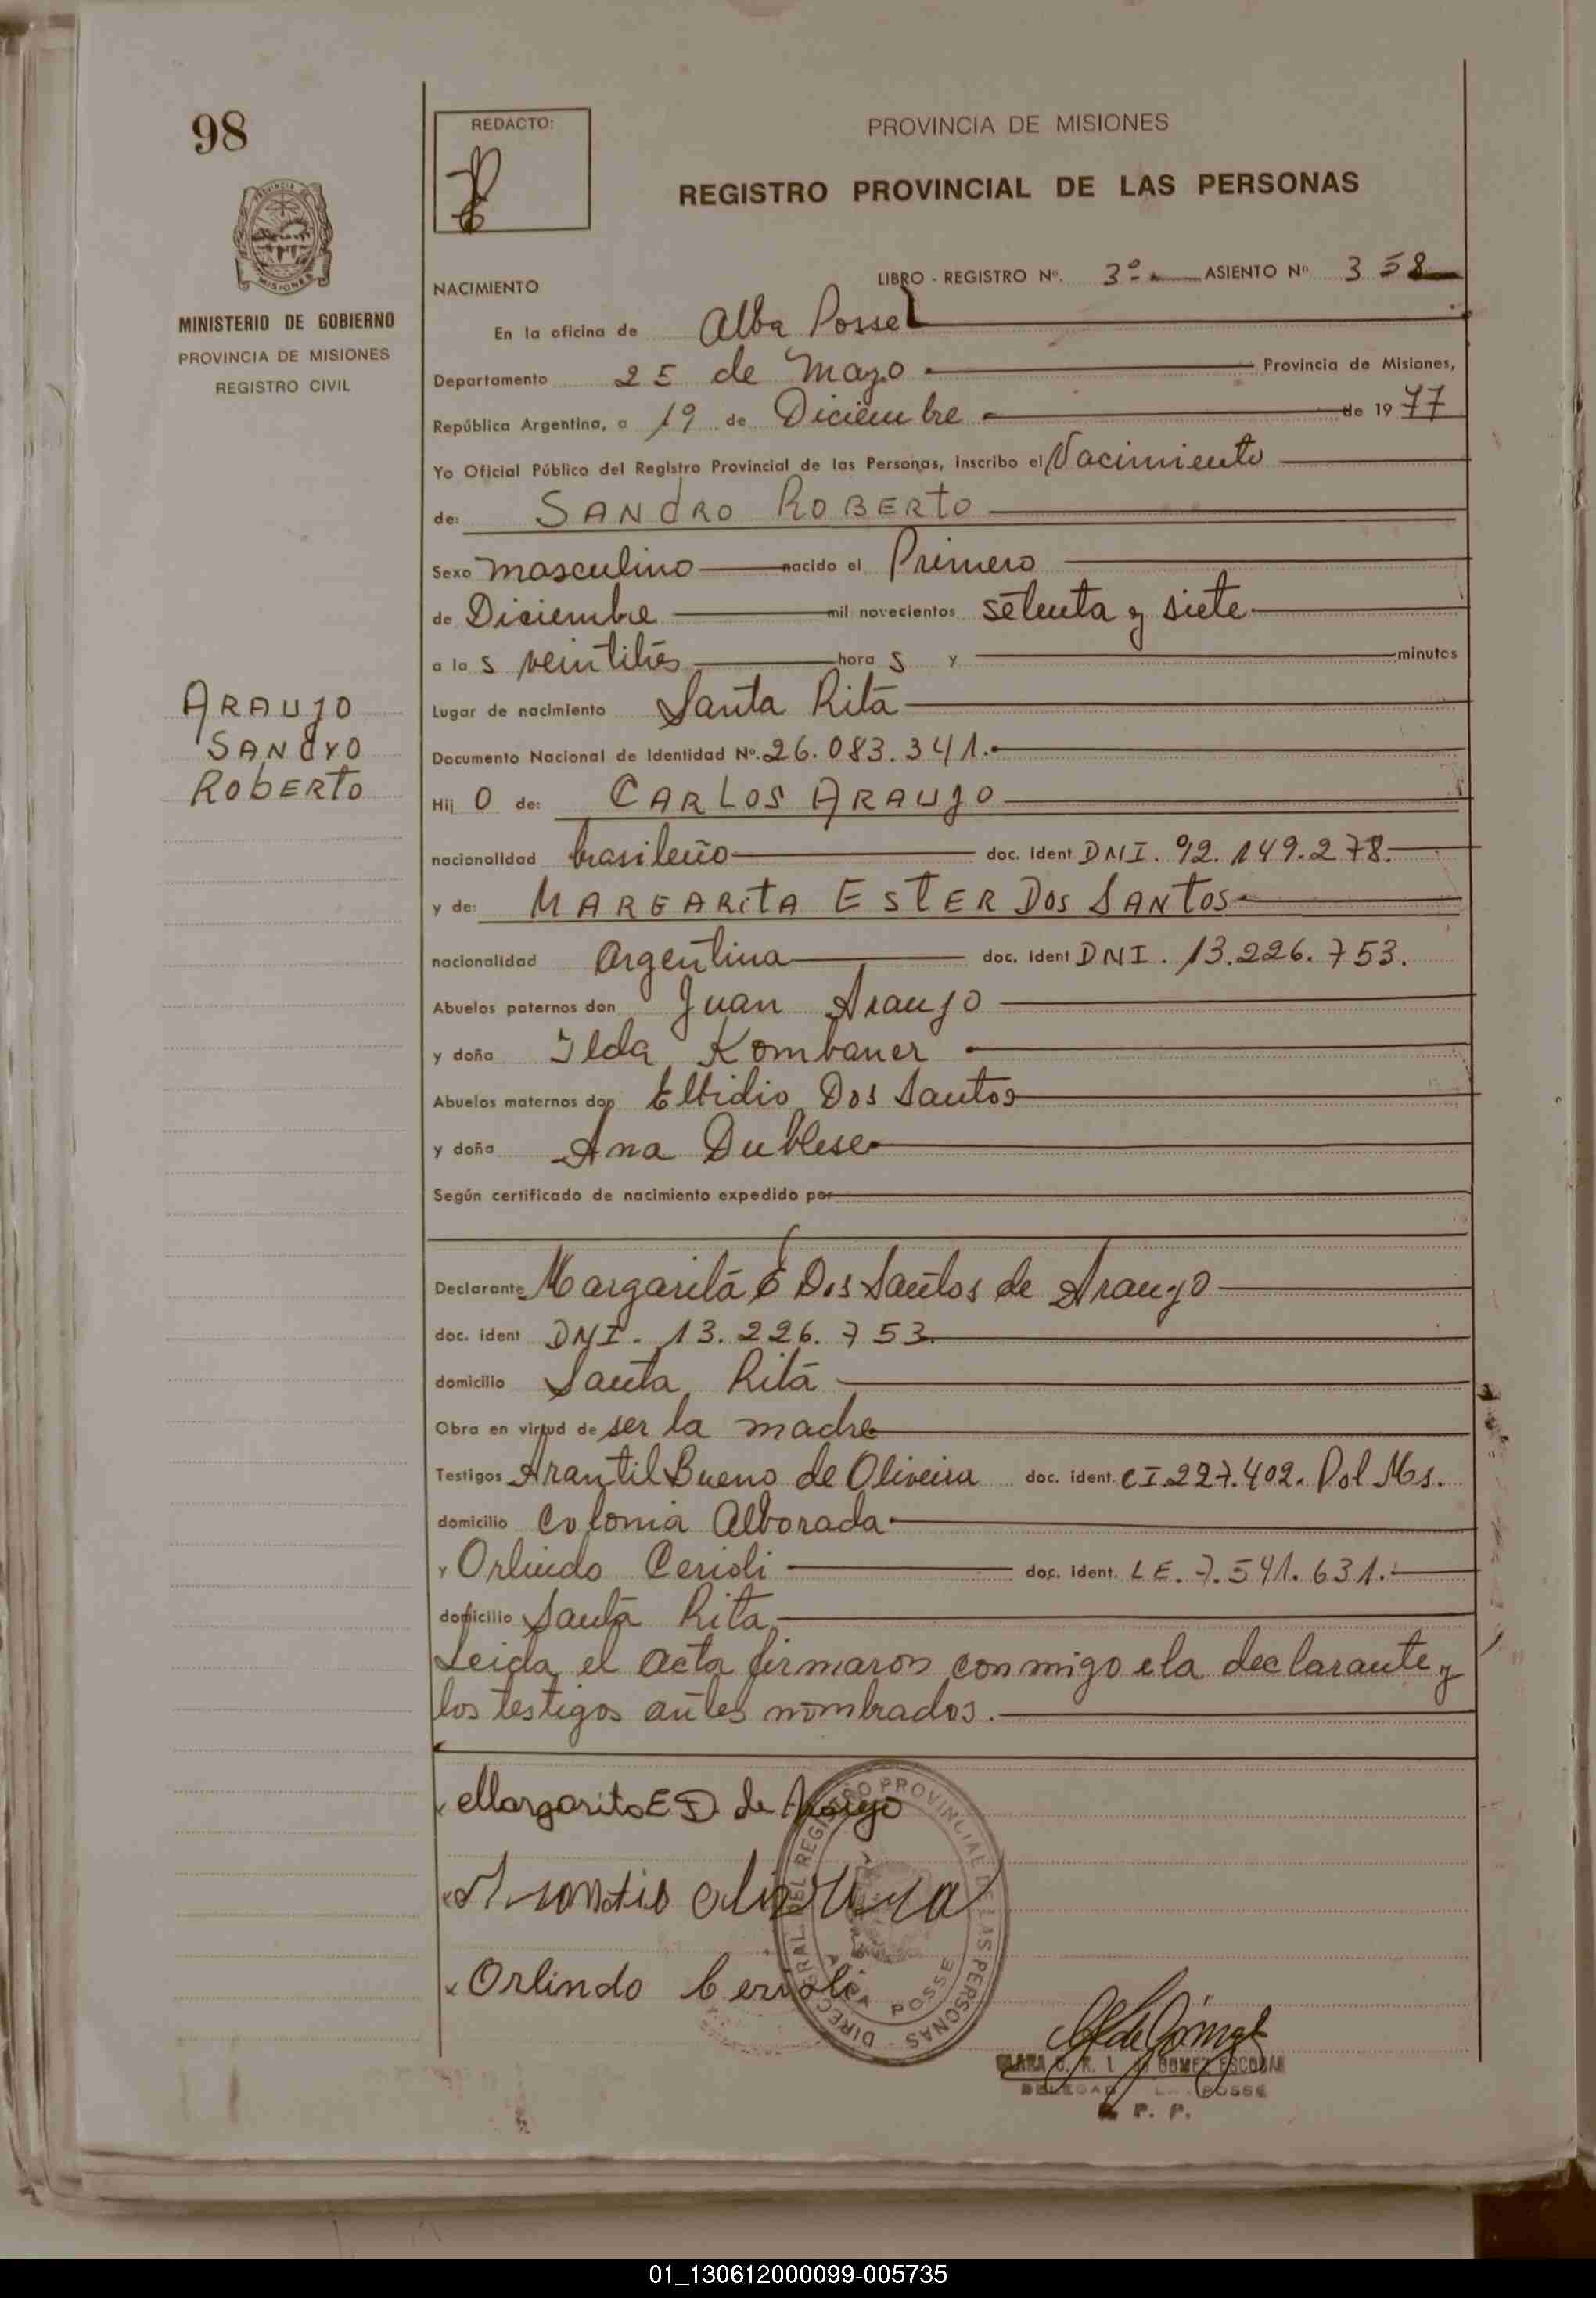 98
REDACTO:
PROVINCIA DE MISIONES
REGISTRO PROVINCIAL DE LAS PERSONAS
MINISTERIO DE GOBIERNO
PROVINCIA DE MISIONES
REGISTRO CIVIL
NACIMIENTO
LIBRO - REGISTRO Nº. 3º ASIENTO Nº 358
En la oficina de Alba Posse
Departamento 25 de Mayo Provincia de Misiones,
República Argentina, a 19 de Diciembre de 1977
Yo Oficial Público del Registro Provincial de las Personas, inscribo el Nacimiento
de: SANDRO ROBERTO
Sexo masculino nacido el Primero
de Diciembre mil novecientos setenta y siete
a las veintitrés horas y minutos
Lugar de nacimiento Santa Rita
ARAUJO
SANDRO
ROBERTO
Documento Nacional de Identidad Nº. 26.083.341.
Hijo de: CARLOS ARAUJO
nacionalidad brasileño doc. ident DNI. 92.149.278.
y de: MARGARITA ESTER DOS SANTOS
nacionalidad Argentina doc. ident DNI. 13.226.753.
Abuelos paternos don Juan Araujo
y doña Ilda Kombaner
Abuelos maternos don Elbidio Dos Santos
y doña Ana Dublese
Según certificado de nacimiento expedido por
Declarante Margarita E Dos Santos de Araujo
doc. ident DNI. 13.226.753.
domicilio Santa Rita
Obra en virtud de ser la madre
Testigos Arantil Bueno de Oliveira doc. ident. CI.227.402. Pol Ms.
domicilio Colonia Alborada
y Orlindo Cerioli doc. ident. LE. 7.541.631.
domicilio Santa Rita
Leida el acta firmaron conmigo la declarante y
los testigos antes nombrados.
Margarita E D. de Araujo
Orlindo Cerioli
DIRECC. GRAL. DEL REGISTRO PROVINCIAL DE LAS PERSONAS
ALBA POSSE
GOMEZ ESCOBAR
POSSE
P. P.
01_130612000099-005735